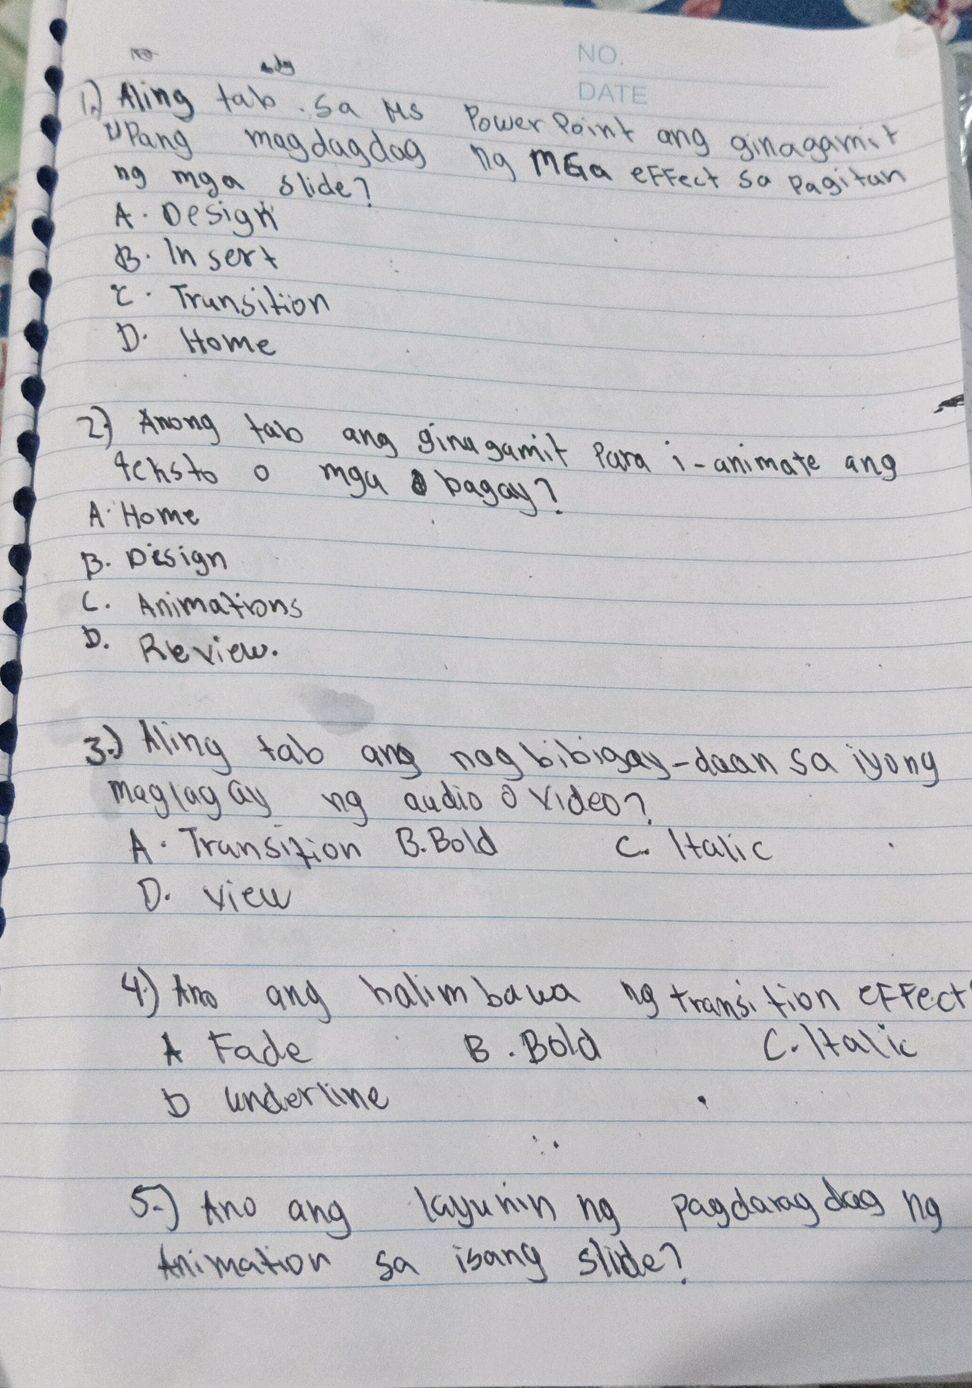 NO.
DATE
1.) Aling tab sa Ms PowerPoint ang ginagamit
upang magdagdag ng MGa eFFect sa pagitan
ng mga slide?
A. Design
B. Insert
C. Transition
D. Home
2.) Anong tab ang ginagamit Para i-animate ang
teksto o mga bagay?
A. Home
B. Design
C. Animations
D. Review.
3.) Aling tab ang nagbibigay-daan sa iyong
maglagay ng audio o video?
A. Transition B. Bold C. Italic
D. view
4.) Ano ang halimbawa ng transition eFFect
A Fade B. Bold C. Italic
D underline
5.) Ano ang layunin ng pagdaragdag ng
Animation sa isang slide?